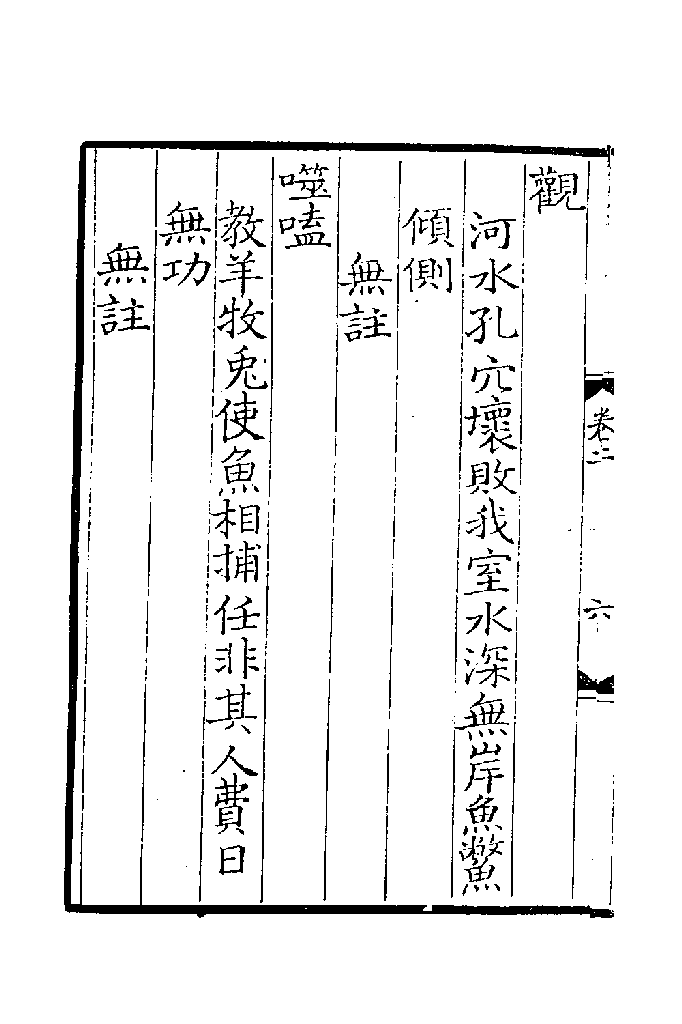 觀
河水孔穴壞敗我室水深無岸魚鱉
傾側
無註
噬嗑
教羊牧兎使魚相捕任非其人費日
無功
無註
卷二
六